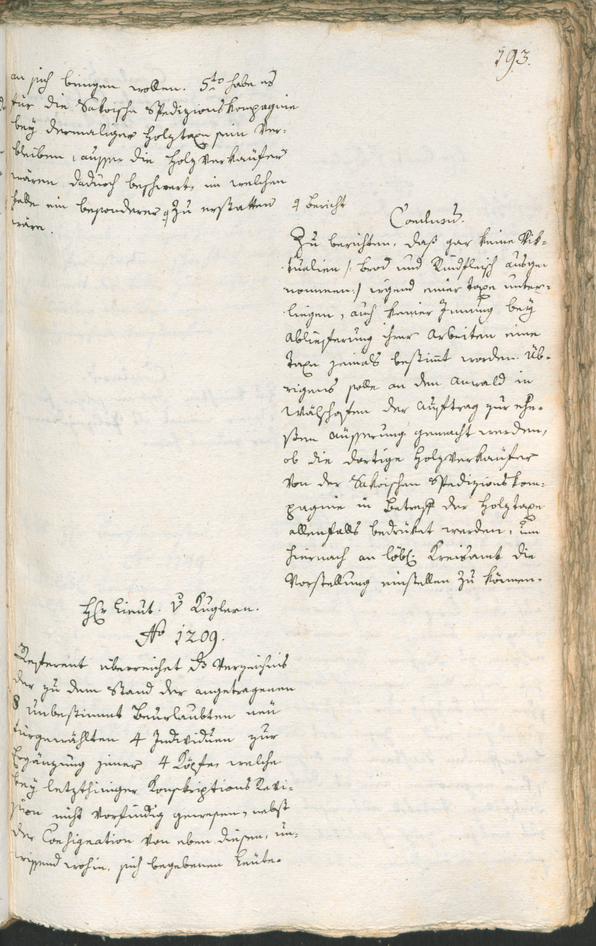 193.
an sich bringen wollen. 5to habe es
für die Sakoische Spedizionskompagnie
bey dermaliger Holztaxe sein Ver-
bleiben, ausser die Holzverkäufer
wären dadurch beschwert, in welchen
falle ein besonderes zu erstatten
wäre.
Bericht
Conclusum.
Zu berichten, daß gar keine Vik-
tualien /: brod und Rindfleisch ausge-
nommen :/ irgend einer taxe unter-
liegen, auch keiner Innung bey
Ablieferung ihrer Arbeiten eine
taxe jemals bestimt worden. Üb-
rigens solle an den Anwald in
der Auftrag zur ehe-
sten äusserung gemacht werden,
ob die dortige Holzverkäufer
von der Sakoischen Spedizionskom-
pagnie in Betreff der Holztaxe
allenfalls bedrükt werden, um
hiernach an löbl: Kreisamt die
Vorstellung einstellen zu können.
Hr Lieut. v Kuglern.
No 1209.
Referent überreichet das Verzeichnis
der zu dem Stand der angetragenen
8 Unbestimmt Beurlaubten neu
fürgewählten 4 Individuen zur
Ergänzung jener 4 Köpfe, welche
bey letzthiniger Konskriptions Revi-
sion nicht vorfindig gewesen, nebst
der Consignation von eben diesen, un-
wissend wohin, sich begebenen Leute.